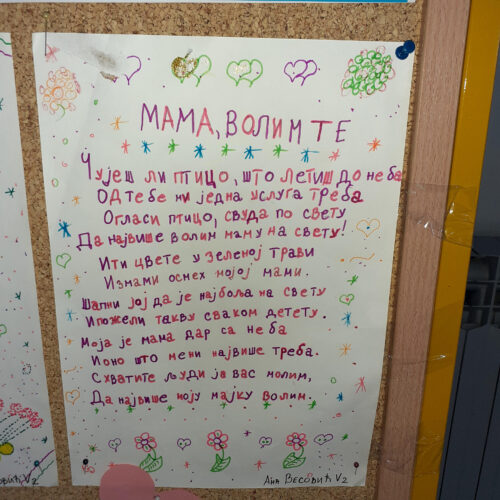 МАМА, ВОЛИМ ТЕ
Чујеш ли птицо, што летиш до неба
Од тебе ни једна услуга треба
Огласи птицо, свуда по свету
Да највише волим маму на свету!
Ити цвете у зеленој трави
Измами осмех мојој мами.
Шапни јој да је најбоља на свету
И пожели такву сваком детету.
Моја је мама дар са неба
И оно што мени највише треба.
Схватите људи ја вас молим,
Да највише моју мајку волим.
Ана Весовић V2
V2